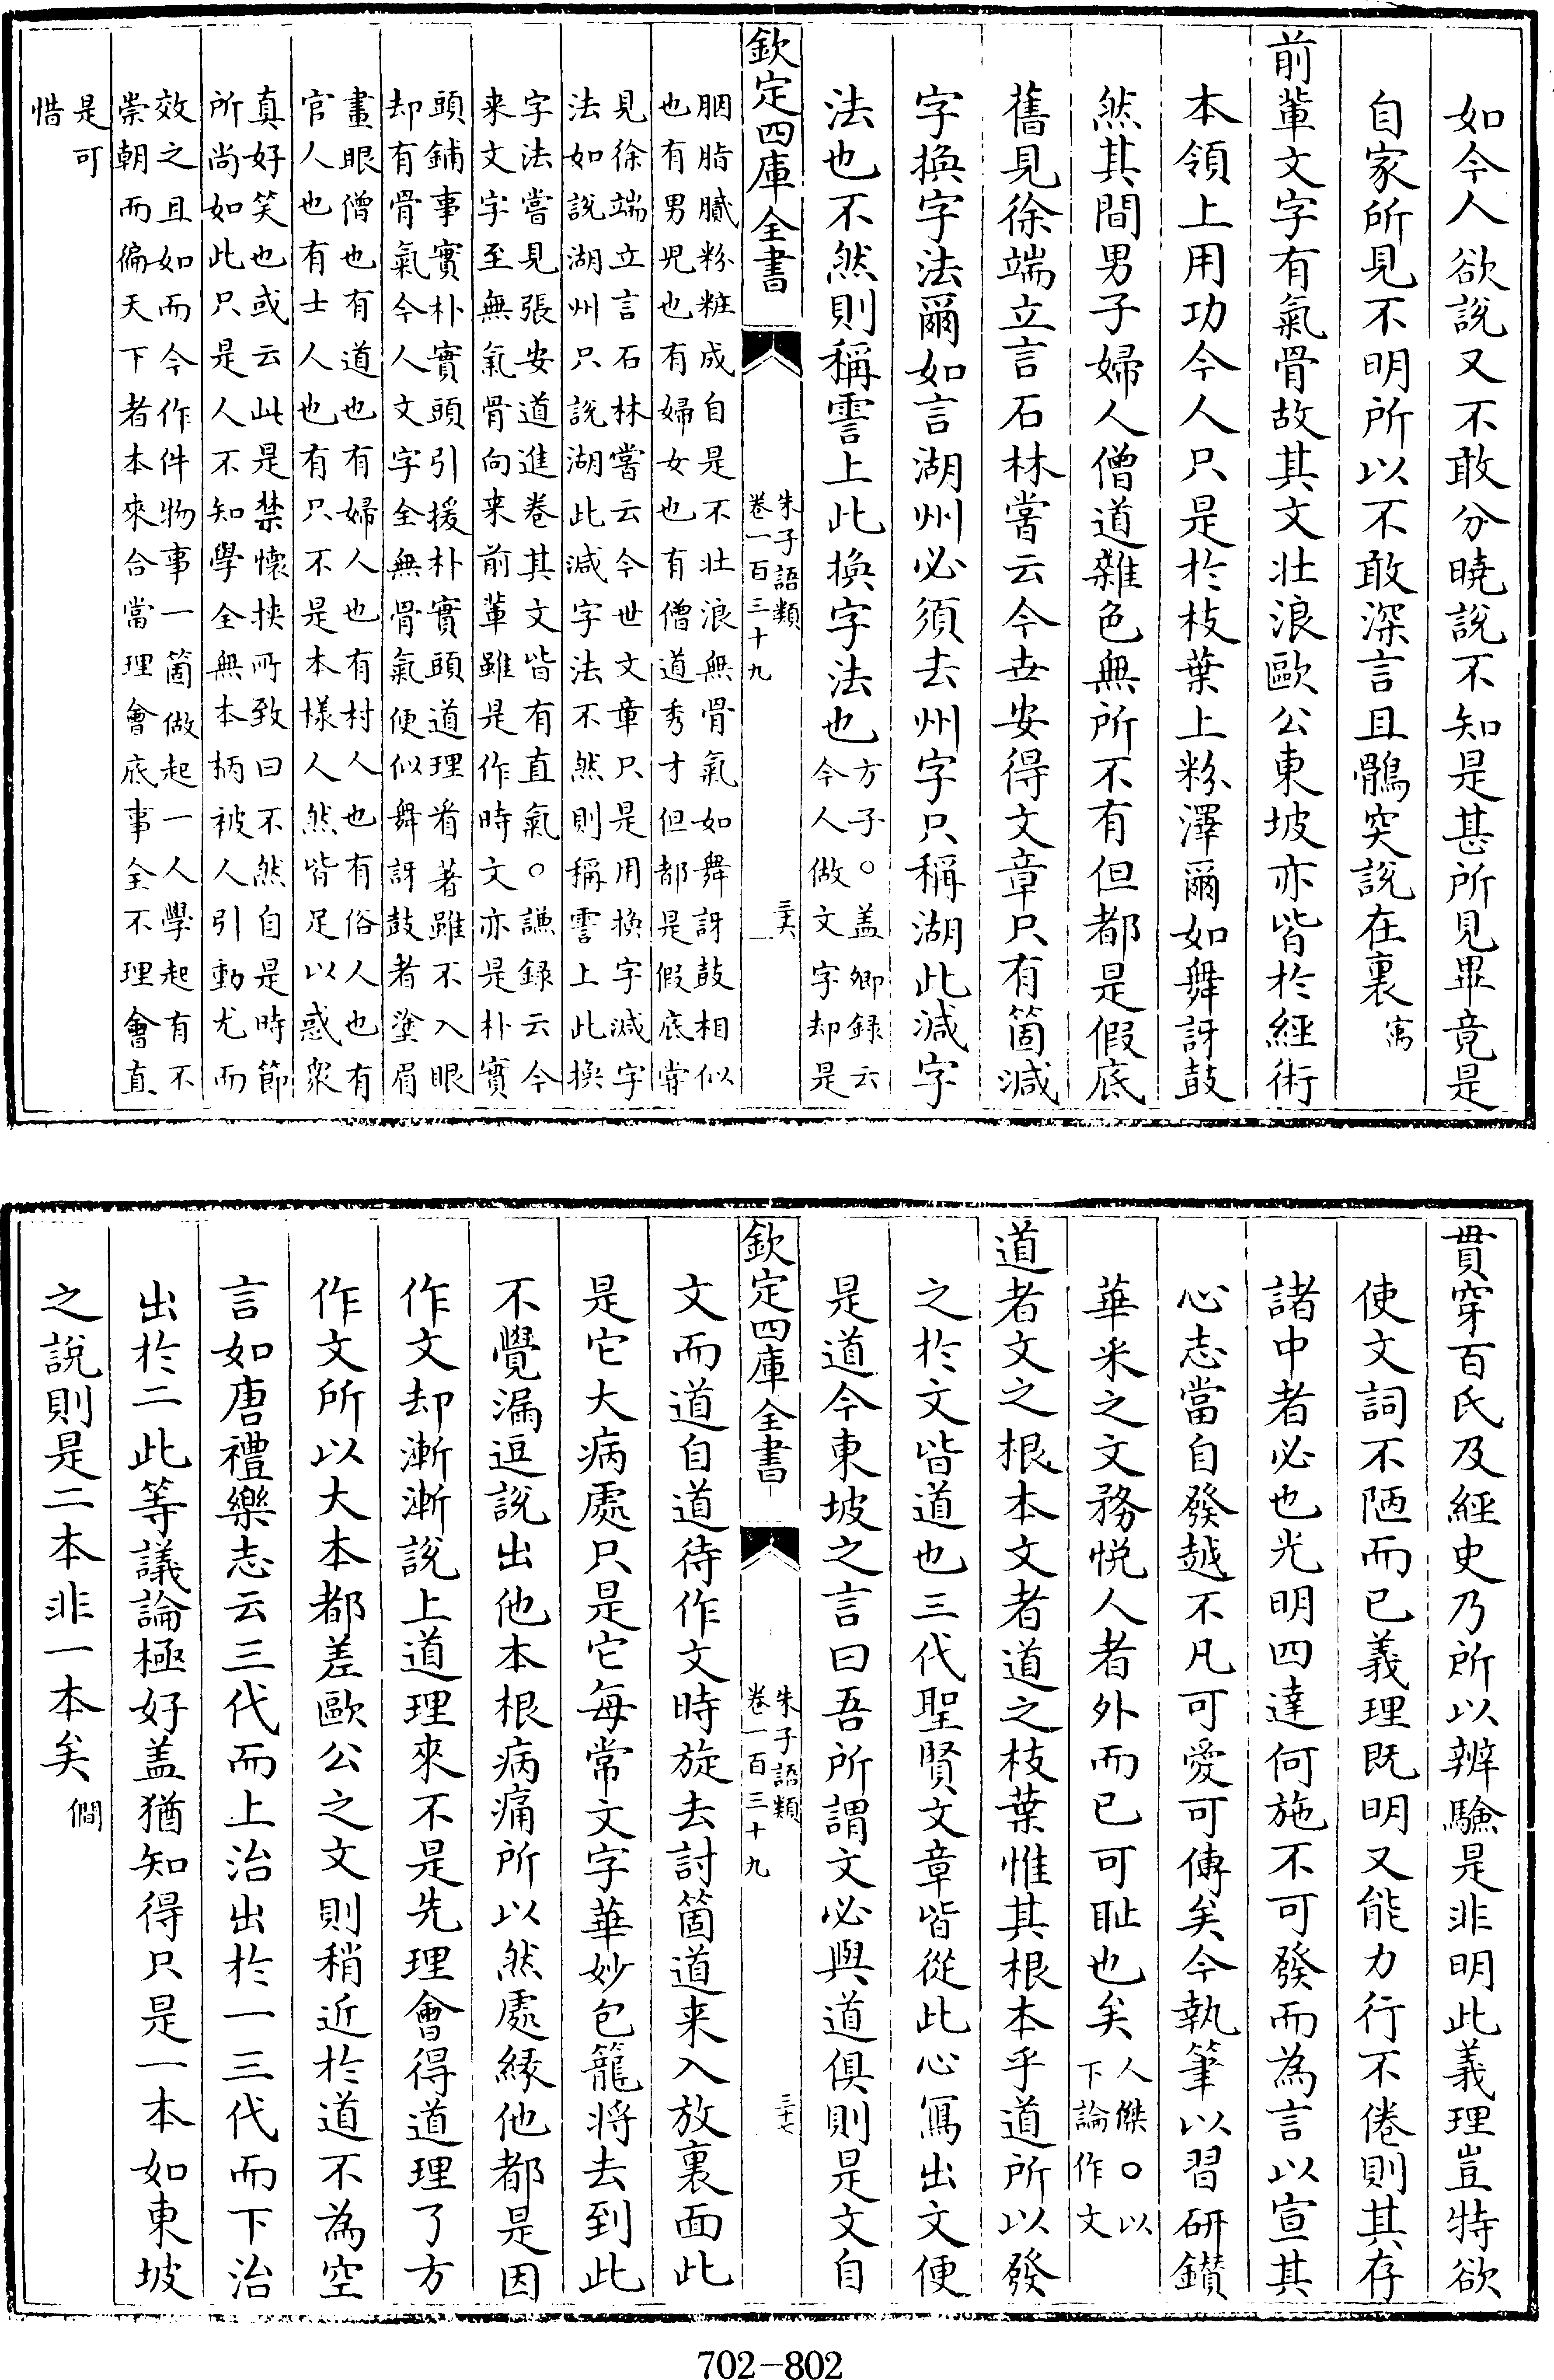 如今人欲說又不敢分曉說不知是甚所見畢竟是
自家所見不明所以不敢深言且鶻突說在裏寓
前輩文字有氣骨故其文壯浪歐公東坡亦皆於經術
本領上用功今人只是於枝葉上粉澤爾如舞訝鼓
然其間男子婦人僧道雜色無所不有但都是假底
舊見徐端立言石林嘗云今世安得文章只有箇減
字換字法爾如言湖州必須去州字只稱湖此減字
法也不然則稱霅上此換字法也方子○盖卿録云
今人做文字却是
欽定四庫全書
朱子語類
卷一百三十九
三十六
胭脂膩粉粧成自是不壯浪無骨氣如舞訝鼓相似
也有男兒也有婦女也有僧道秀才但都是假底嘗
見徐端立言石林嘗云今世文章只是用換字減字
法如說湖州只說湖此減字法不然則稱霅上此換
字法嘗見張安道進卷其文皆有直氣○謙録云今
来文字至無氣骨向来前輩雖是作時文亦是朴實
頭鋪事實朴實頭引援朴實頭道理看著雖不入眼
却有骨氣今人文字全無骨氣便似舞訝鼓者塗眉
畫眼僧也有道也有婦人也有村人也有俗人也有
官人也有士人也有只不是本樣人然皆足以惑衆
真好笑也或云此是禁懷挾所致曰不然自是時節
所尚如此只是人不知學全無本柄被人引動尤而
效之且如而今作件物事一箇做起一人學起有不
崇朝而徧天下者本來合當理會底事全不理會直
是可
惜
貫穿百氏及經史乃所以辨驗是非明此義理豈特欲
使文詞不陋而已義理既明又能力行不倦則其存
諸中者必也光明四達何施不可發而為言以宣其
心志當自發越不凡可愛可傳矣今執筆以習研鑽
華采之文務悅人者外而已可耻也矣人傑○以
下論作文
道者文之根本文者道之枝葉惟其根本乎道所以發
之於文皆道也三代聖賢文章皆從此心寫出文便
是道今東坡之言曰吾所謂文必與道俱則是文自
欽定四庫全書
朱子語類
卷一百三十九
三十七
文而道自道待作文時旋去討箇道来入放裏面此
是它大病處只是它每常文字華妙包籠將去到此
不覺漏逗說出他本根病痛所以然處緣他都是因
作文却漸漸說上道理來不是先理會得道理了方
作文所以大本都差歐公之文則稍近於道不為空
言如唐禮樂志云三代而上治出於一三代而下治
出於二此等議論極好盖猶知得只是一本如東坡
之說則是二本非一本矣僩
702-802